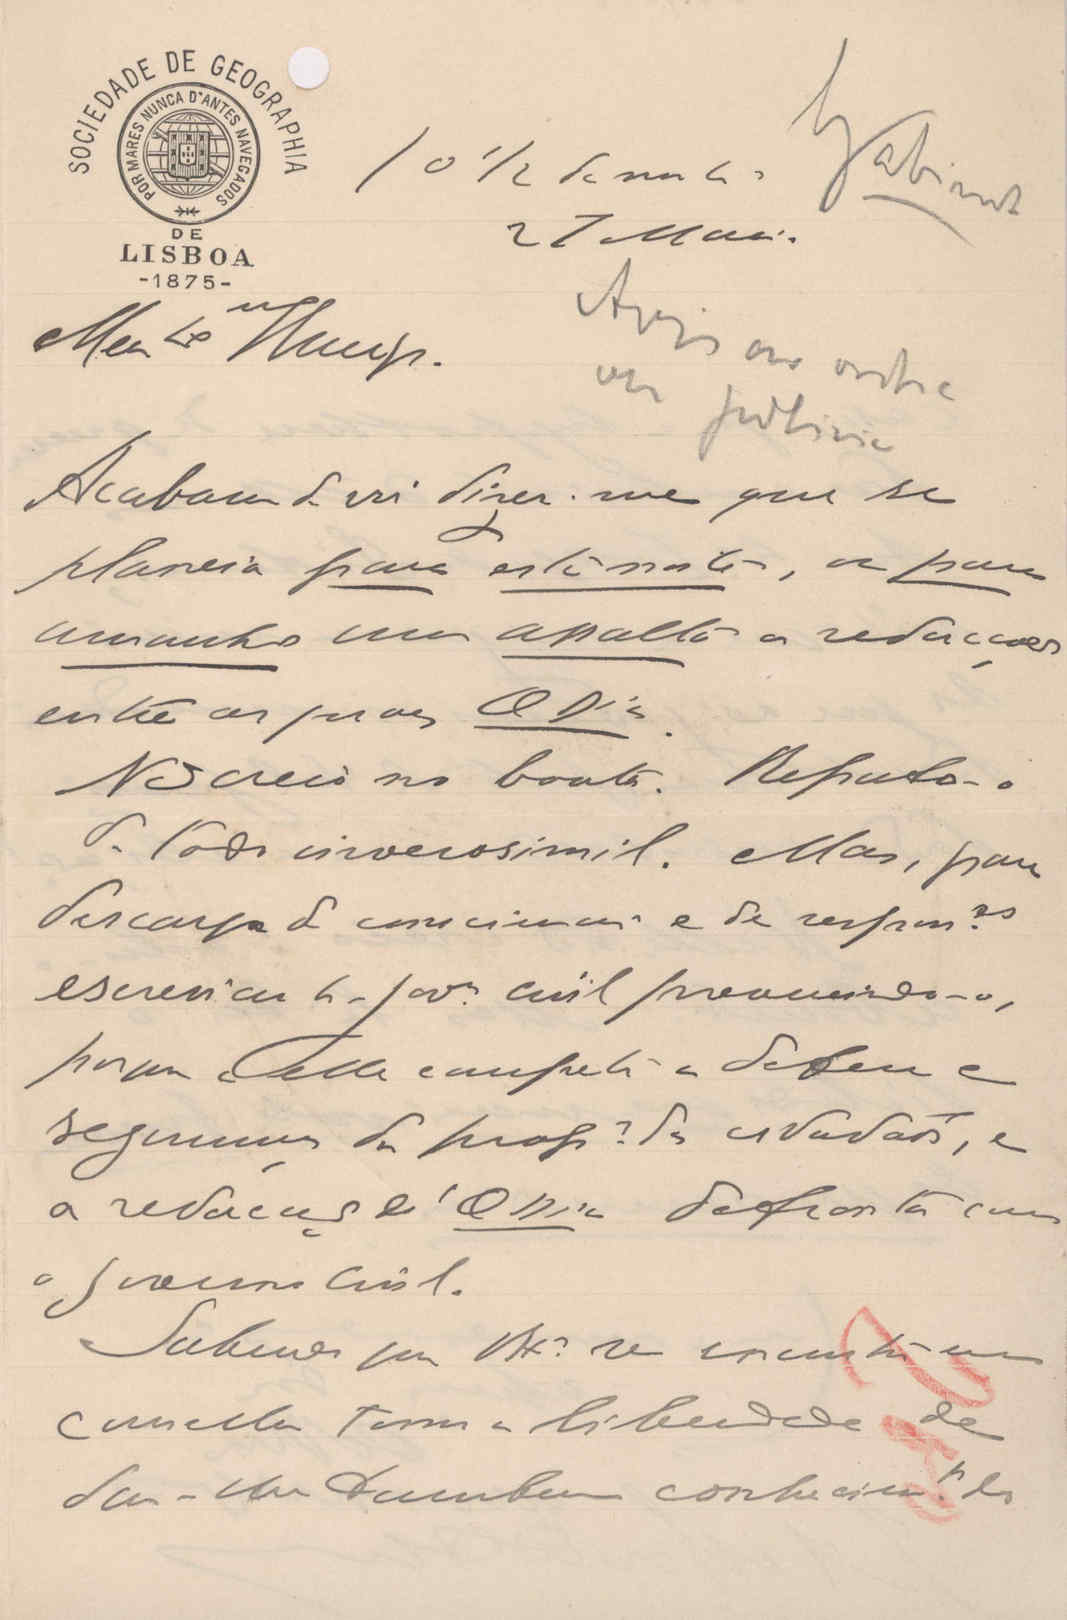 SOCIEDADE DE GEOGRAPHIA
POR MARES NUNCA D'ANTES NAVEGADOS
DE
LISBOA
-1875-
10 1/2 da noite
Gabinete
27 Maio.
Meu
Acabam de vir dizer-me que se
planeia para esta noite, ou para
amanhã um assalto a redacção
entre as quaes O Dia.
Não creio no boato. Reputo-o
de todo inverosimil. Mas, para
descarga de consciencia e de respon.es
escrevi ao gov.or civil prevenindo-o,
porque a elle compete a defesa e
segurança da prop.e dos cidadãos, e
a redacção d'O Dia defronta com
o governo civil.
Sabendo que V. Ex.a se encontra em
tomo a liberdade de
dar-lhe tambem conhecim.to do